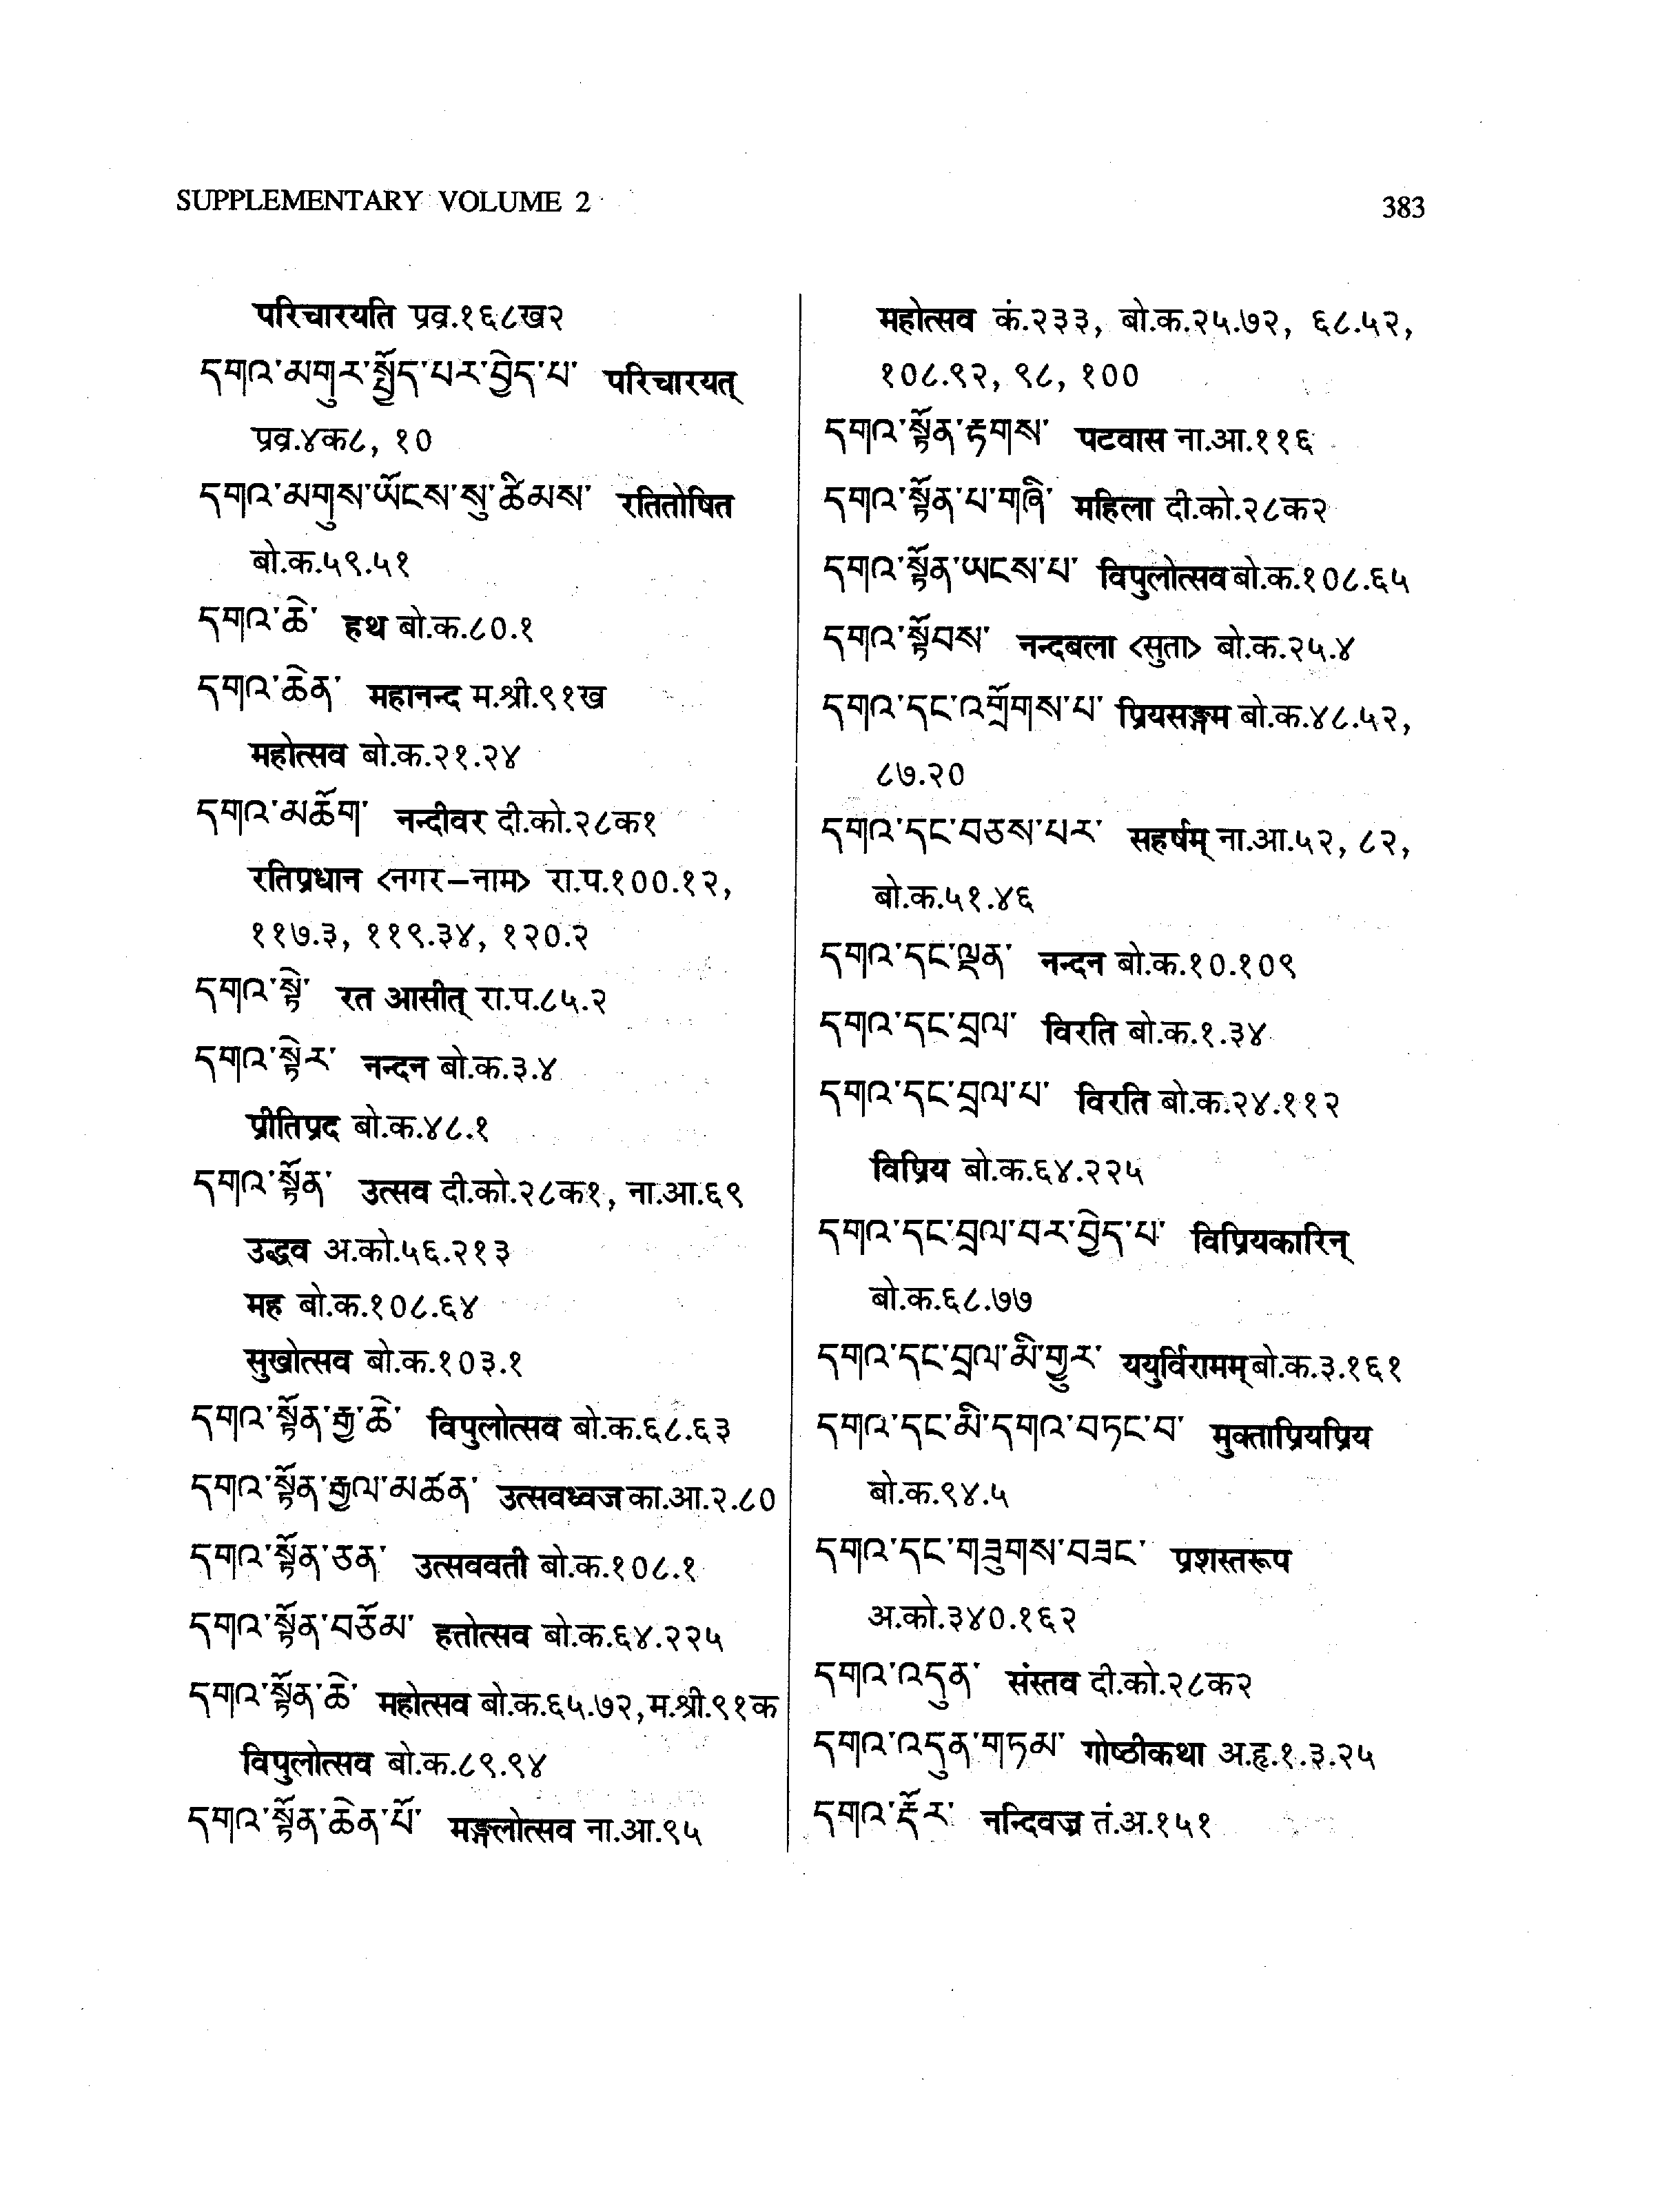 SUPPLEMENTARY VOLUME 2
383
परिचारयति प्रव्र.१६८ख२
དགའ་མགུར་སྤྱོད་པར་བྱེད་པ་ परिचारयत्
प्रव्र.४क८, १०
དགའ་མགུས་ཡོངས་སུ་ཚིམས་ रतितोषित
बो.क.५९.५१
དགའ་ཆེ་ हथ बो.क.८०.१
དགའ་ཆེན་ महानन्द म.श्री.९१ख
महोत्सव बो.क.२१.२४
དགའ་མཆོག་ नन्दीवर दी.को.२८क१
रतिप्रधान <नगर–नाम> रा.प.१००.१२,
११७.३, ११९.३४, १२०.२
དགའ་སྟེ་ रत आसीत् रा.प.८५.२
དགའ་སྟེར་ नन्दन बो.क.३.४
प्रीतिप्रद बो.क.४८.१
དགའ་སྟོན་ उत्सव दी.को.२८क१, ना.आ.६९
उद्धव अ.को.५६.२१३
मह बो.क.१०८.६४
सुखोत्सव बो.क.१०३.१
དགའ་སྟོན་རྒྱ་ཆེ་ विपुलोत्सव बो.क.६८.६३
དགའ་སྟོན་རྒྱལ་མཚན་ उत्सवध्वज का.आ.२.८०
དགའ་སྟོན་ཅན་ उत्सववती बो.क.१०८.१
དགའ་སྟོན་བཅོམ་ हतोत्सव बो.क.६४.२२५
དགའ་སྟོན་ཆེ་ महोत्सव बो.क.६५.७२, म.श्री.९१क
विपुलोत्सव बो.क.८९.९४
དགའ་སྟོན་ཆེན་པོ་ मङ्गलोत्सव ना.आ.९५
महोत्सव कं.२३३, बो.क.२५.७२, ६८.५२,
१०८.९२, ९८, १००
དགའ་སྟོན་རྟགས་ पटवास ना.आ.११६
དགའ་སྟོན་པ་གཞི་ महिला दी.को.२८क२
དགའ་སྟོན་ཡངས་པ་ विपुलोत्सव बो.क.१०८.६५
དགའ་སྟོབས་ नन्दबला <सुता> बो.क.२५.४
དགའ་དང་འགྲོགས་པ་ प्रियसङ्गम बो.क.४८.५२,
८७.२०
དགའ་དང་བཅས་པར་ सहर्षम् ना.आ.५२, ८२,
बो.क.५१.४६
དགའ་དང་ལྡན་ नन्दन बो.क.१०.१०९
དགའ་དང་བྲལ་ विरति बो.क.१.३४
དགའ་དང་བྲལ་པ་ विरति बो.क.२४.११२
विप्रिय बो.क.६४.२२५
དགའ་དང་བྲལ་བར་བྱེད་པ་ विप्रियकारिन्
बो.क.६८.७७
དགའ་དང་བྲལ་མི་གྱུར་ ययुर्विरामम् बो.क.३.१६१
དགའ་དང་མི་དགའ་བཏང་བ་ मुक्ताप्रियप्रिय
बो.क.९४.५
དགའ་དང་གཟུགས་བཟང་ प्रशस्तरूप
अ.को.३४०.१६२
དགའ་འདུན་ संस्तव दी.को.२८क२
དགའ་འདུན་གཏམ་ गोष्ठीकथा अ.हृ.१.३.२५
དགའ་རྡོར་ नन्दिवज्र तं.अ.१५१